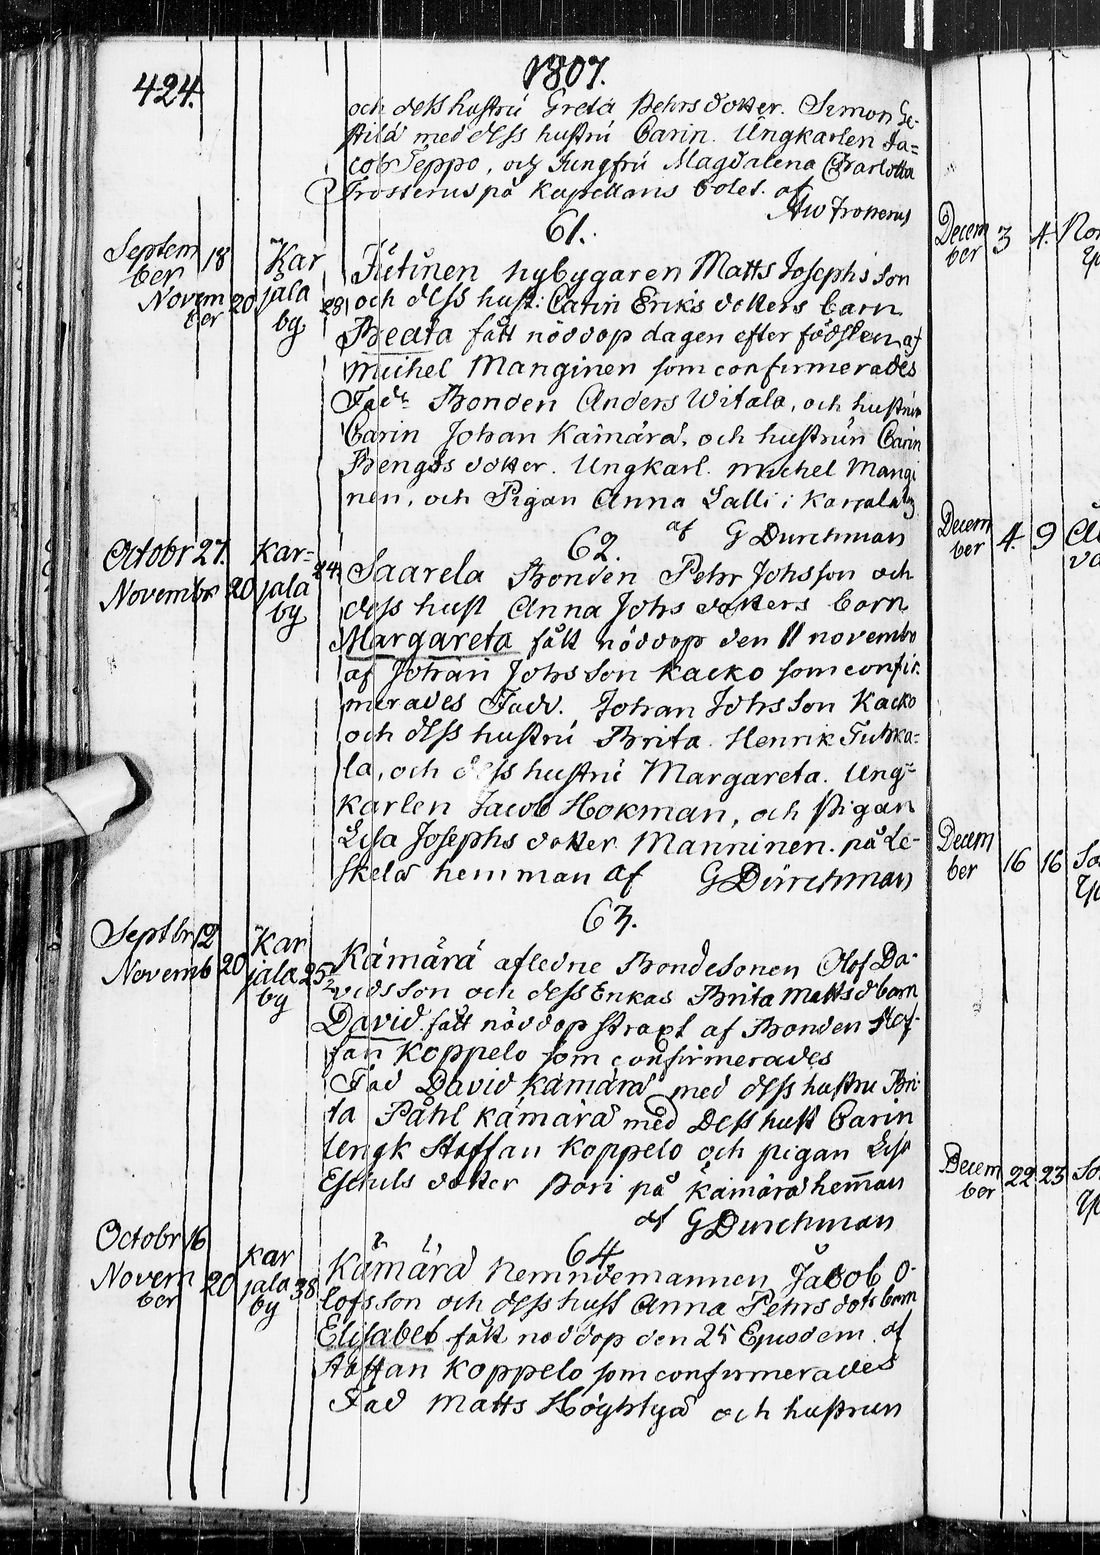 424.
1807.
och dess hustru Greta Pehrs dotter. Simon Se-
stilä med dess hustru Carin. Ungkarlen Ja=
cob Teppo, och Jungfru Magdalena Charlotta
Frosterus på Kapellans bolet. af
61.
Septem
ber 18
Novem
ber 20
Kar
jala
by
28
Tiitinen nybygaren Matts Josephs son
och dess hust: Carin Eriks dotters barn
Beata fått nöddop dagen efter födslen af
Michel Manginen som confirmerades
Fadr Bonden Anders Witala, och hustrun
Carin Johan Kämärä, och hustrun Carin
Bengts dotter. Ungkarl. Michel Mangi
nen, och Pigan Anna Lalli i Karjala by
af G Durchman
62.
Octobr 27.
Novembr 20
Kar=
jala
by
24
Saarela Bonden Pehr Johsson och
dess hust Anna Johs dotters barn
Margareta fått nöddop den 11 novembr
af Johan Johs Son Kacko som confir.
merades Fadd. Johan Johs Son Kacko
och dess hustru Brita. Henrik Tuhka=
la, och dess hustru Margareta. Ung=
karlen Jacob Hokman, och pigan
Lisa Josephs dotter Manninen. på Le-
skelä hemman af G Durchman
63.
Septbr 12
Novemb 20
Kar
jala
by
25½
Kämärä afledne Bondesonen Olof Da-
vids son och dess Enkas Brita Matts d barn
David fått nöddop straxt af Bonden Staf-
fan Koppelo som confirmerades
Fad David Kämärä med dess hustru Bri
ta Påhl Kämärä med Dess hust Carin
Ungk Staffan Koppelo och pigan Lisa
Eschils dotter Pori på Kämärä hemman
af G Durchman
64
Octobr 16
Novem
ber 20
Kar
jala
by
38
Kämärä Nemndemannen Jacob O-
lofs son och dess hust Anna Pehrs dotr barn
Elisabet fått nöddop den 25 Ejusdem af
Staffan Koppelo som confirmerades
Fad Matts Höyhtyä och hustrun
Decem
ber 3 4.
Decem
ber 4. 9
Decem
ber 16 16
Decem
ber 22 23